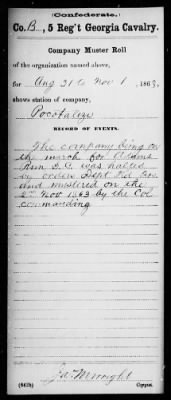 (Confederate.)
Co. B, 5 Reg't Georgia Cavalry.
Company Muster Roll
of the organization named above,
for Aug 31 to Nov 1, 1863,
shows station of company,
Pocotaligo
RECORD OF EVENTS.
The company being on
the march for Adams
Run S.C. was halted
by order Dept Hd. Qrs.
and mustered on the
2nd Nov 1863 by the Col
commanding
(642b)
Copyist.